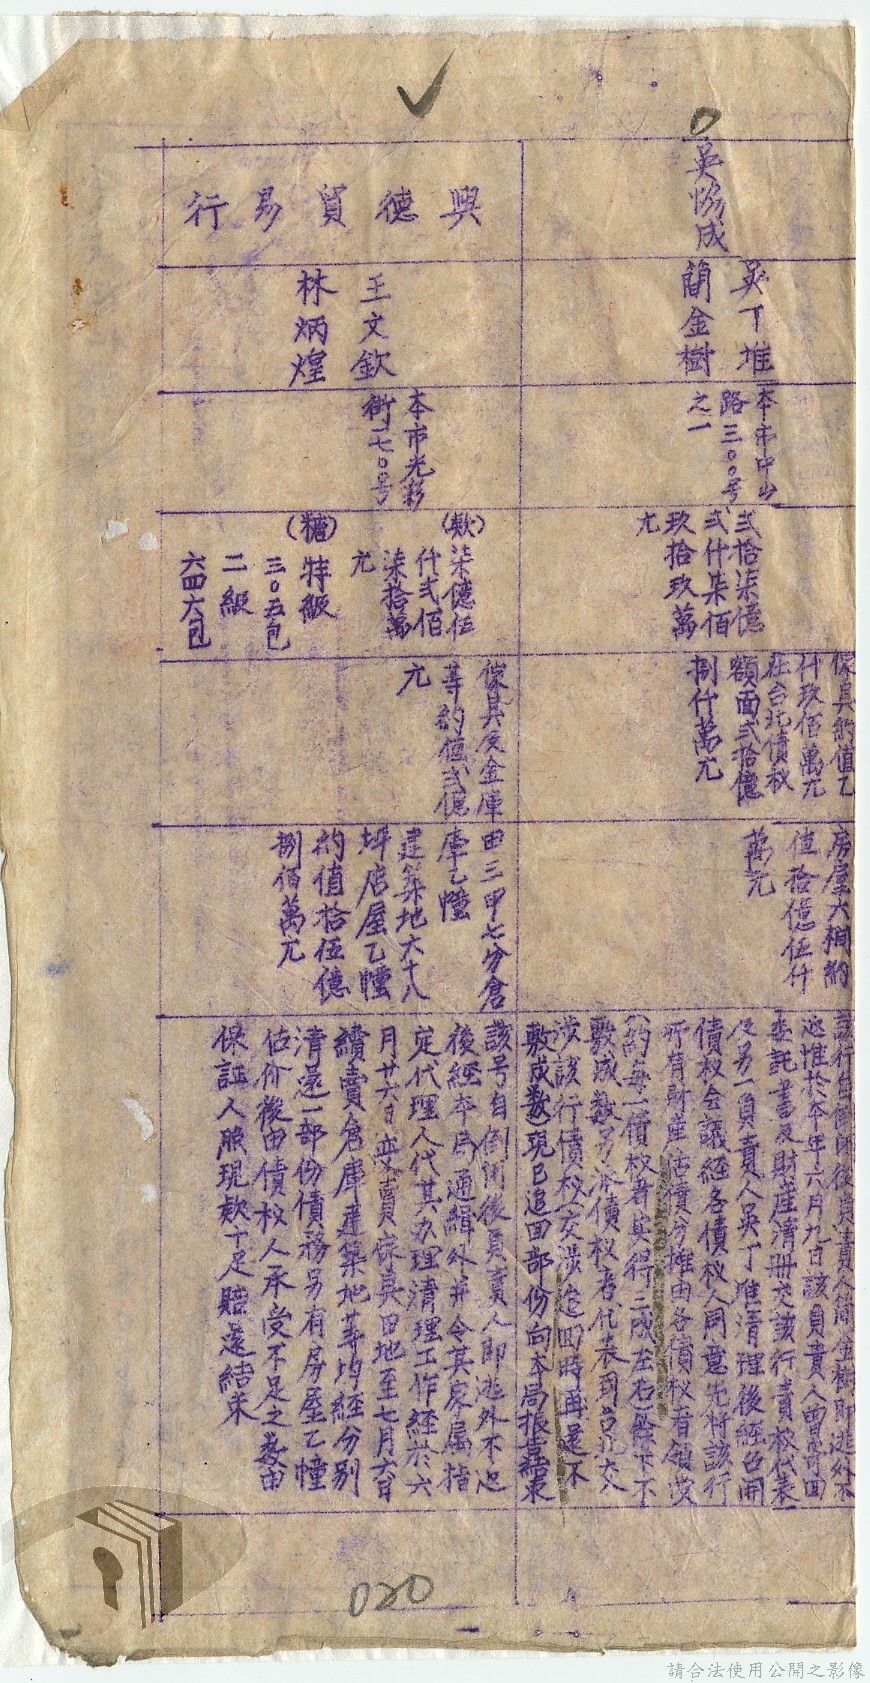 吳協成
吳丁堆
簡金樹
本市中山
路三〇〇号
之一
弍拾柒億
弍仟柒佰
玖拾玖萬
元
傢具約值乙
仟玖佰萬元
在台北債权
額面弍拾億
捌仟萬元
房屋六棟約
值拾億伍仟
萬元
該行自倒閉後負責人簡金樹即逃外不
返惟於本年六月九日該負責人曾寄回
委託書及財產清冊交該行責权代表
及另一負責人吳丁堆清理後經召開
債权会議經各債权人同意先將該行
所有財產估價分攤由各債权者領受
(約每一債权者实得二成左右)餘下不
敷成数另派債权者代表到台北大人
涉該行債权交涉追回時再還不
敷成数現已追回部份向本局报告結束
興德貿易行
王文欽
林炳煌
本市光彩
街一七〇号
(欵)柒億伍
仟弍佰
柒拾萬
元
(糖)特級
三〇五包
二級
六四六包
傢具及金庫
等約值弍億
元
田三甲七分倉
庫乙幢
建築地六十八
坪店屋乙幢
約值拾伍億
捌佰萬元
該号自倒閉後負責人即逃外不返
後經本局通緝外并令其家屬指
定代理人代其办理清理工作經於六
月廿六日变賣傢具田地至七月六日
續賣倉庫建築地等均經分別
清還一部份債務另有房屋乙幢
估价後由債权人承受不足之数由
保証人照現欵十足賠還結束
020
請合法使用公開之影像